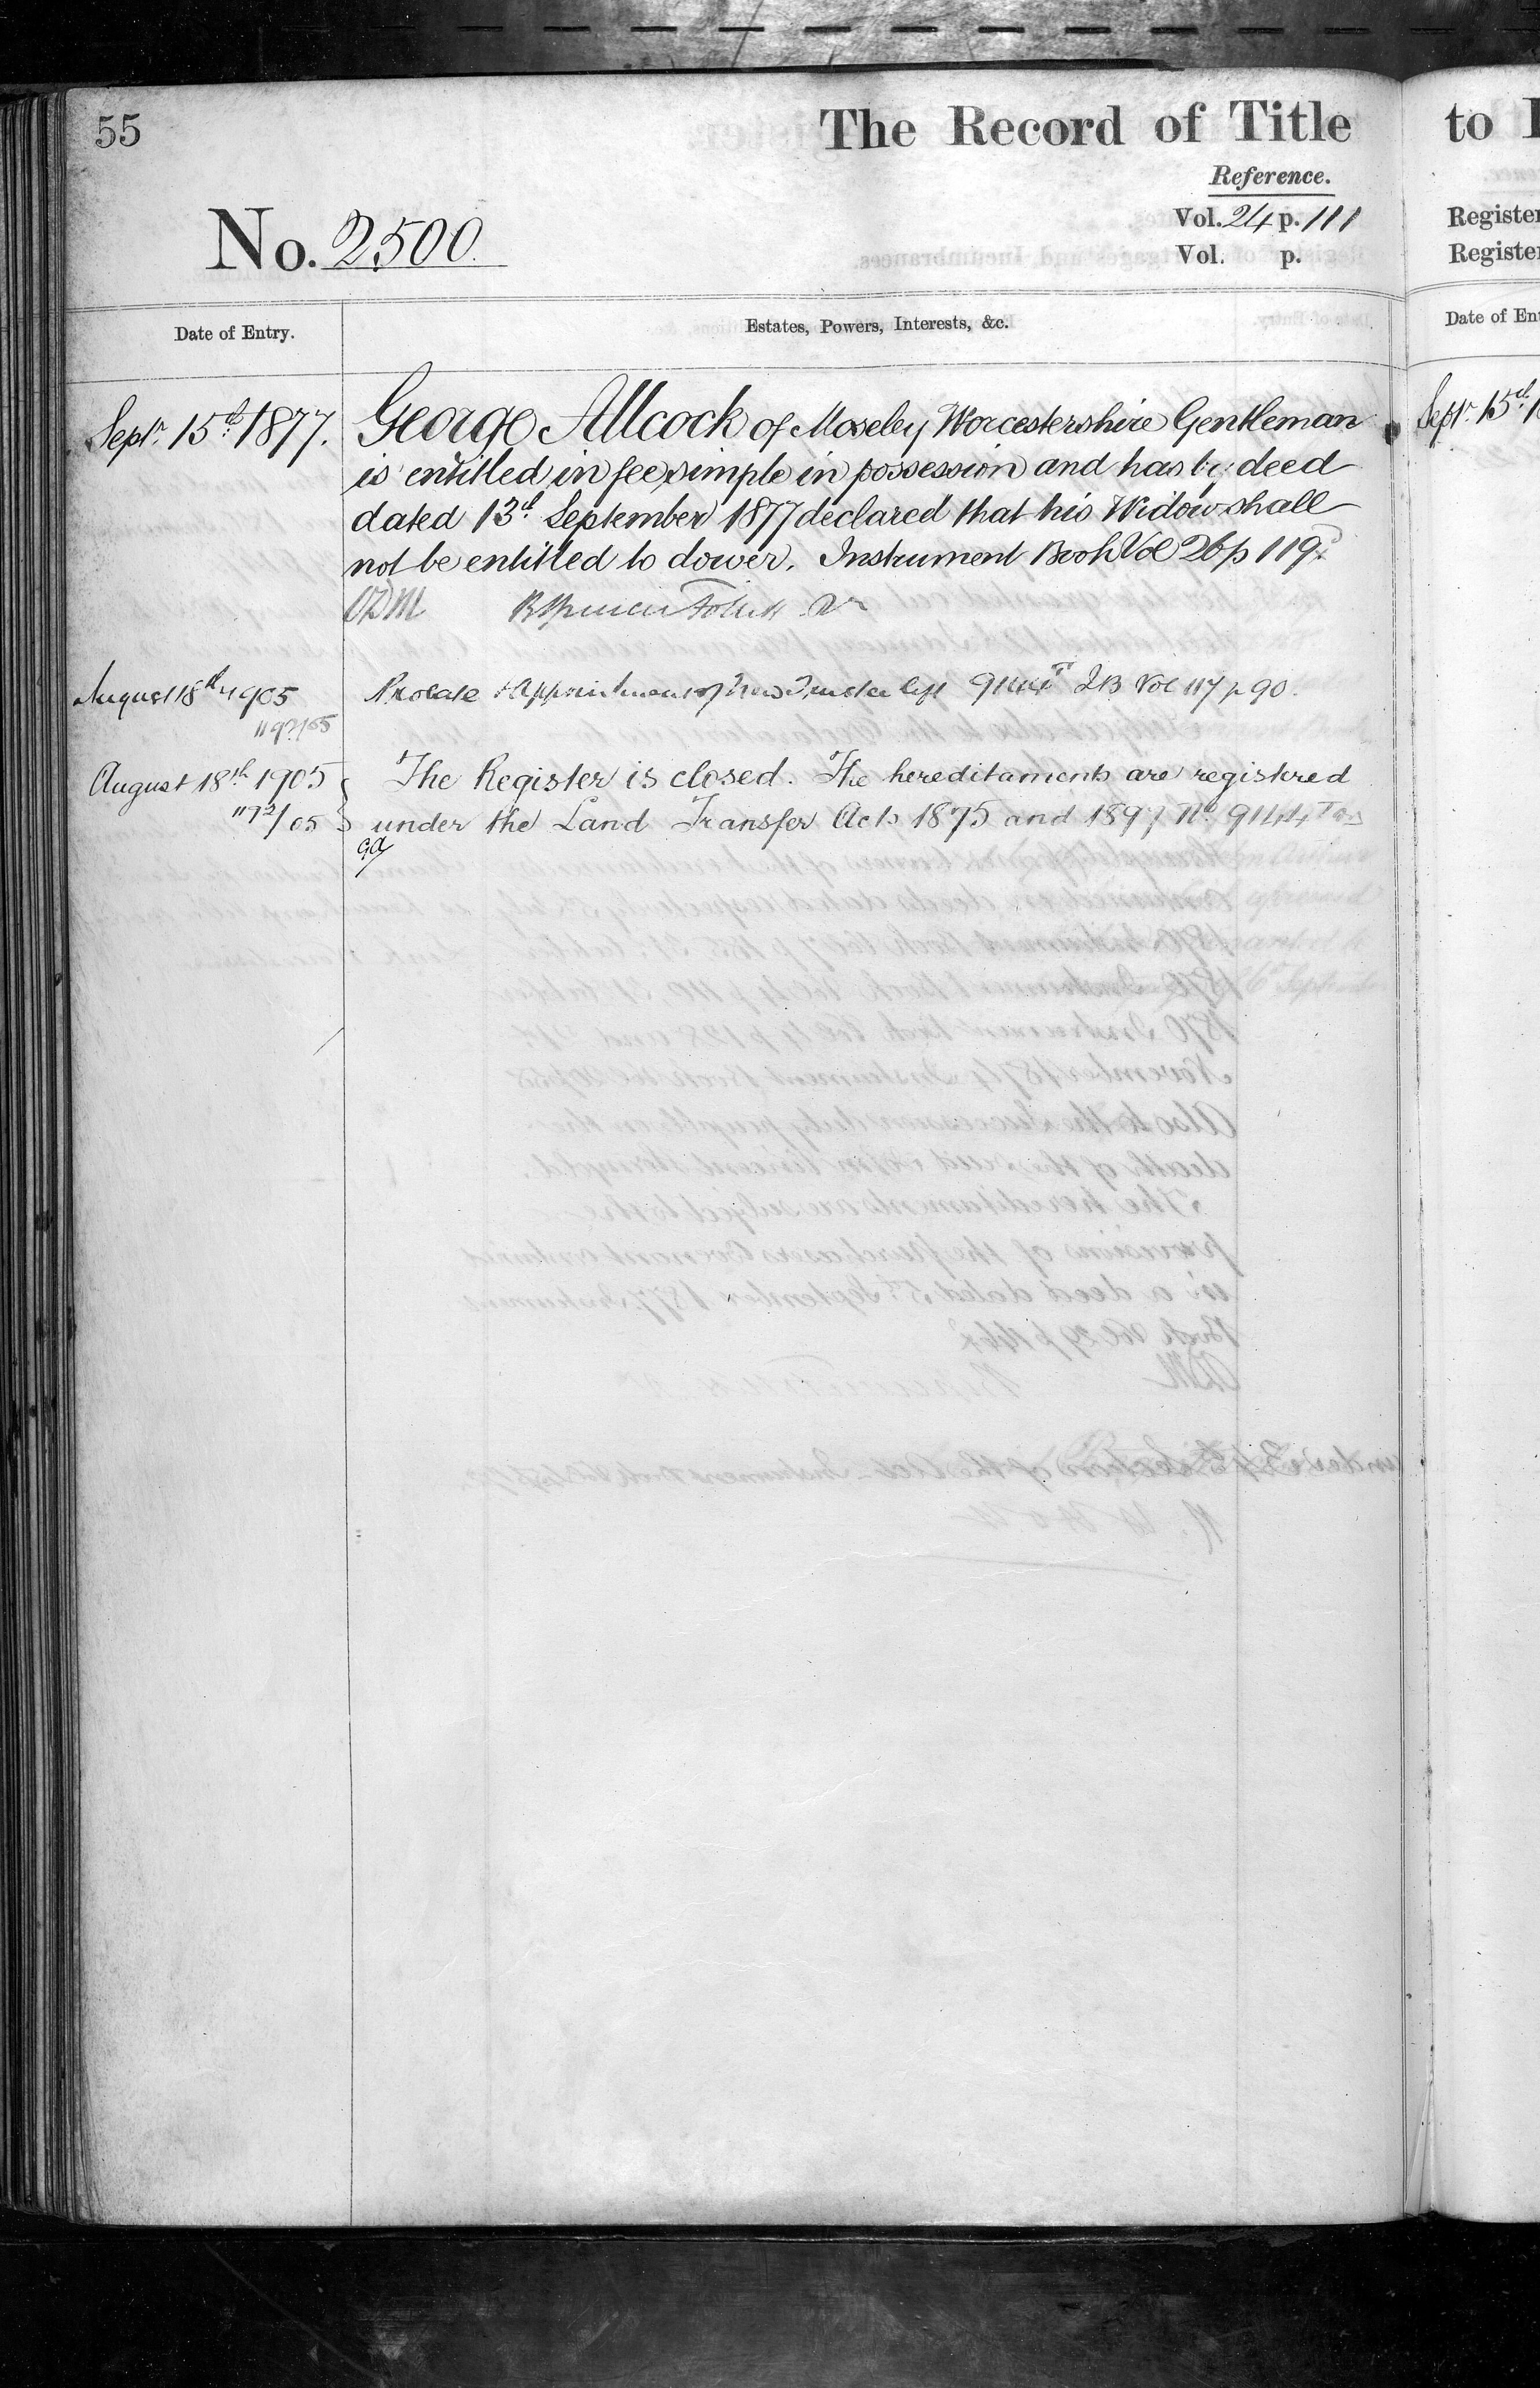 55
The Record of Title
Reference.
No. 2500.
Vol. 24 p. 111
Vol. p.
Date of Entry.
Estates, Powers, Interests, &c.
Septr. 15th 1877.
George Allcock of Moseley Worcestershire Gentleman
is entitled in fee simple in possession and has by deed
dated 13th September 1877 declared that his Widow shall
not be entitled to dower. Instrument Book Vol 26 p 119.
August 18th 1905
Probate & Appointment of New Trustee left 9144T IB Vol 117 p 90.
August 18th 1905
The Register is closed. The hereditaments are registered
under the Land Transfer Acts 1875 and 1897 No. 9144T
to
Register
Register
Date of
Septr. 15th